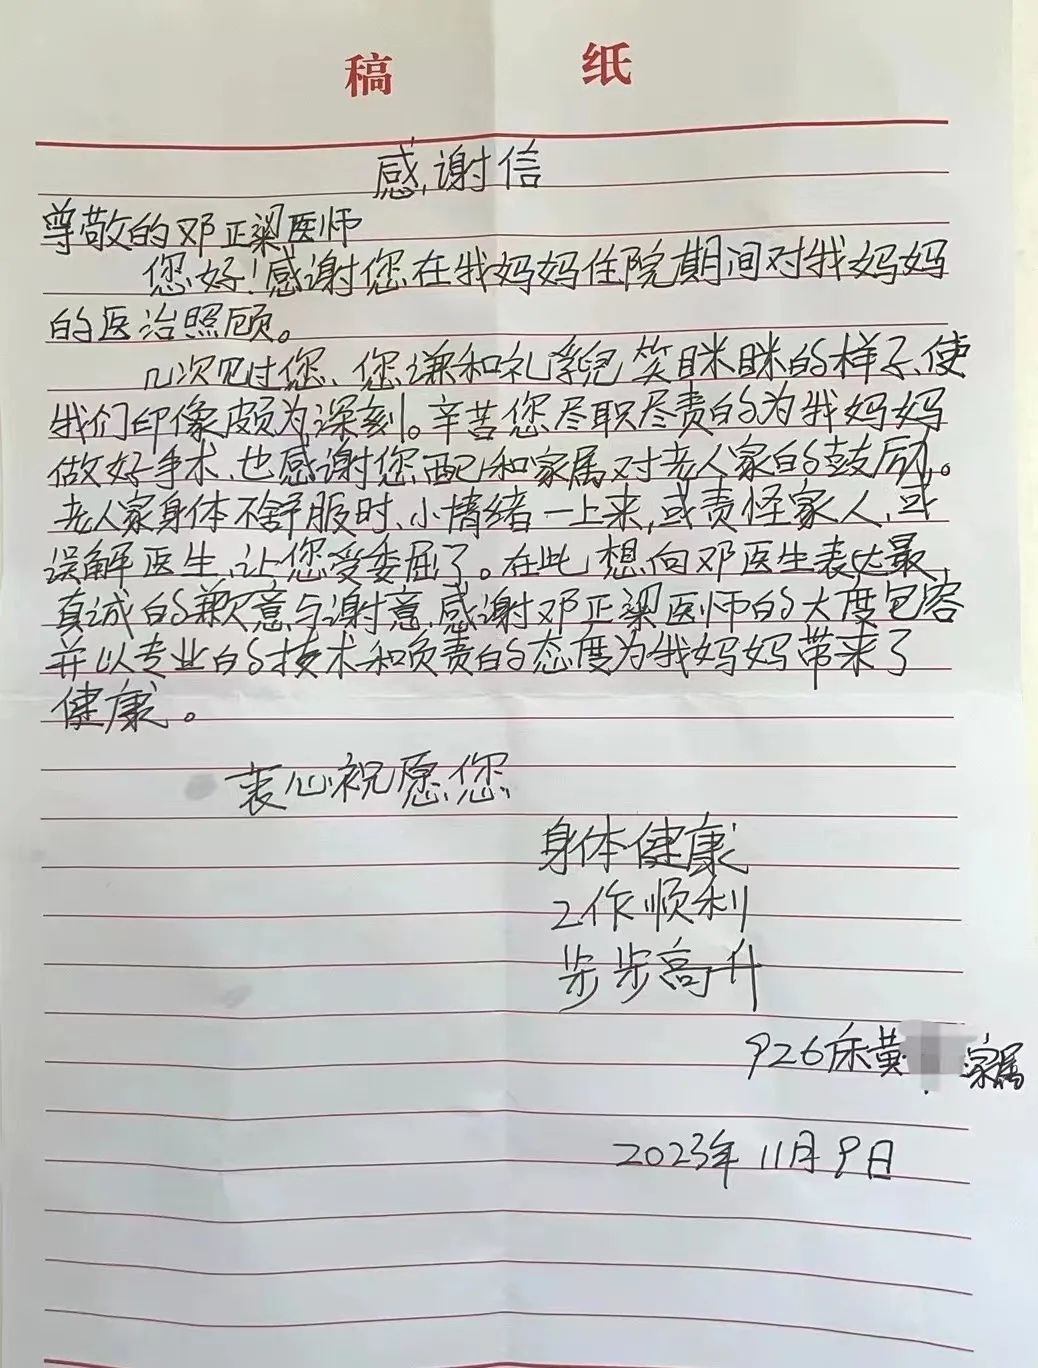 稿 纸
感谢信
尊敬的邓正梁医师
您好!感谢您在我妈妈住院期间对我妈妈
的医治照顾。
几次见过您、您谦和礼貌笑眯眯的样子、使
我们印像颇为深刻。辛苦您尽职尽责的为我妈妈
做好手术、也感谢您配合和家属对老人家的鼓励。
老人家身体不舒服时、小情绪一上来,或责怪家人、或
误解医生、让您受委屈了。在此想向邓医生表达最
真诚的歉意与谢意、感谢邓正梁医师的大度包容
并以专业的技术和负责的态度为我妈妈带来了
健康。
衷心祝愿您
身体健康
工作顺利
步步高升
926床黄 家属
2023年11月9日